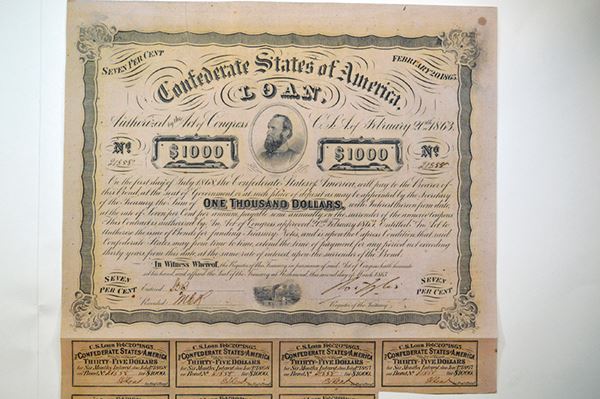 SEVEN PER CENT
FEBRUARY 20, 1863.
Confederate States of America,
LOAN,
Authorized by the Act of Congress C.S.A. of February 20th 1863.
No $1000 $1000 No
21555 21555
On the first day of July 1868 the Confederate States of America, will pay to the Bearer of
this Bond, at the seat of Government or at such place of deposit as may be appointed by the Secretary
of the Treasury the Sum of ONE THOUSAND DOLLARS, with Interest thereon from date
at the rate of Seven per Cent per annum, payable semi annually on the surrender of the annexed Coupons
This Contract is authorized by An Act of Congress approved 20th February 1863, Entitled "An Act to
Authorize the issue of Bonds for funding Treasury Notes, and is upon the Express Condition, that said
Confederate States may from time to time, extend the time of payment for any period not exceeding
thirty years from this date at the same rate of interest, upon the surrender of the Bond.
In Witness Whereof, the Register of the Treasury in pursuance of said Act of Congress hath hereunto
set his hand and affixed the Seal of the Treasury at Richmond, this 2nd day of March 1863
SEVEN PER CENT
Entered
Recorded
Register of the Treasury
SEVEN PER CENT
C.S. LOAN Feb 20th 1863.
The CONFEDERATE STATES of AMERICA
THIRTY-FIVE DOLLARS
for Six Months Interest due
on Bond No 21555 for $1000.
C.S. LOAN Feb 20th 1863.
The CONFEDERATE STATES of AMERICA
THIRTY-FIVE DOLLARS
for Six Months Interest due
on Bond No 21555 for $1000.
C.S. LOAN Feb 20th 1863.
The CONFEDERATE STATES of AMERICA
THIRTY-FIVE DOLLARS
for Six Months Interest due
on Bond No 21555 for $1000.
C.S. LOAN Feb 20th 1863.
The CONFEDERATE STATES of AMERICA
THIRTY-FIVE DOLLARS
for Six Months Interest due
on Bond No 21555 for $1000.